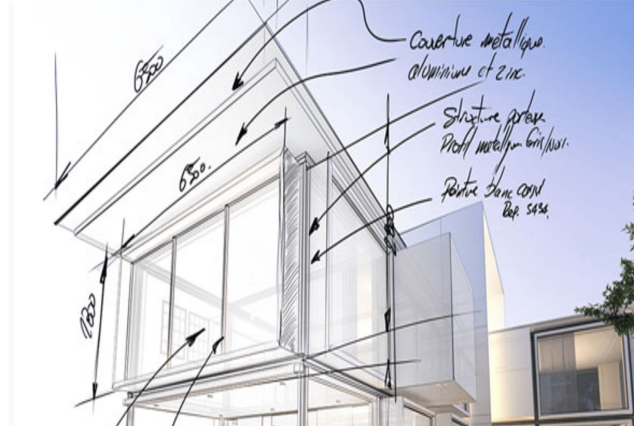 6500
Couverture métallique.
aluminium et zinc.
Structure porteuse
Profil métallique Gris/Noir.
6500.
Peinture blanc cassé
Rep. 5434.